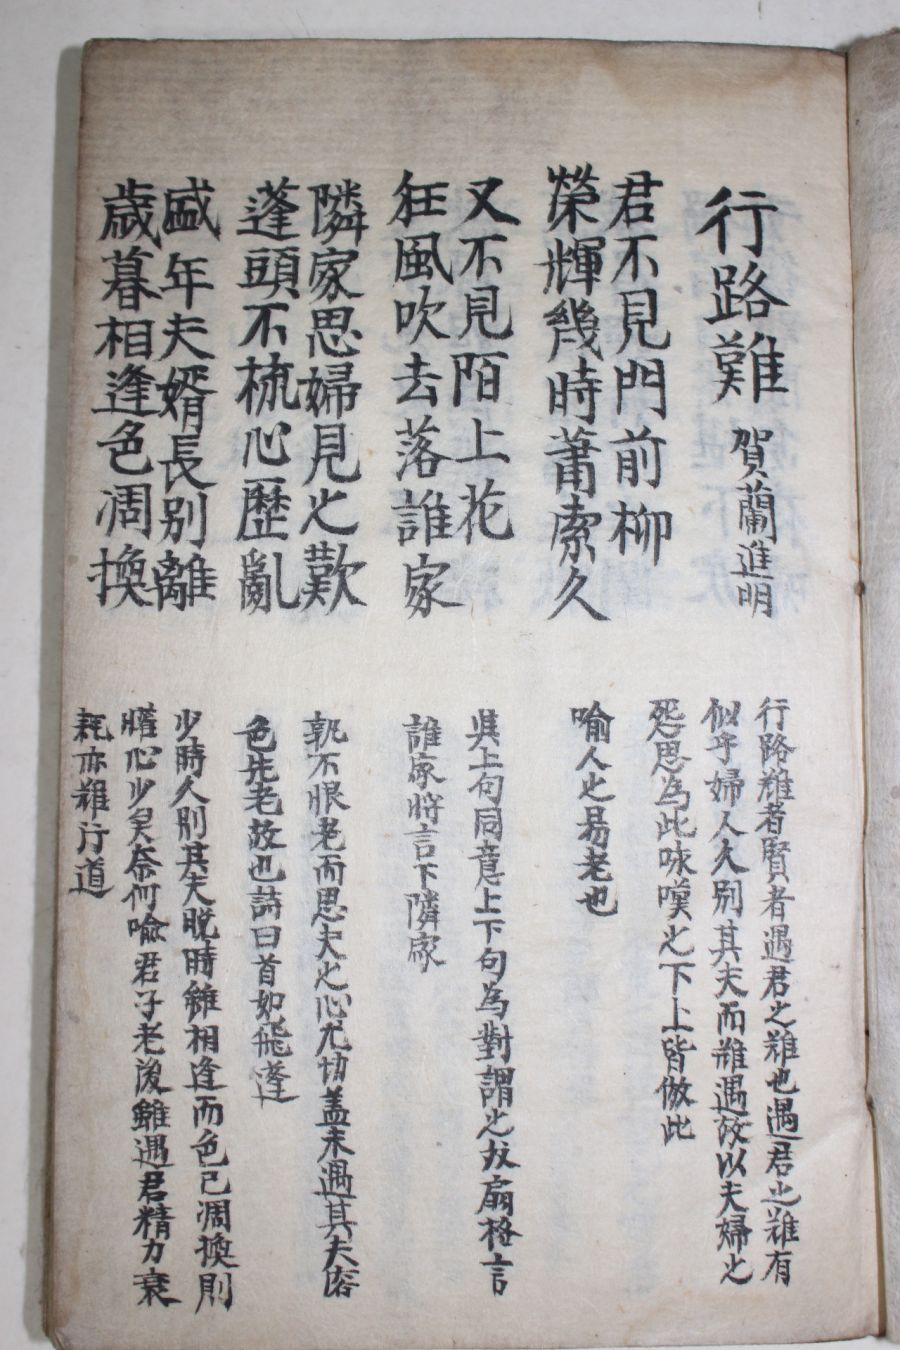 行路難 賀蘭進明
君不見門前柳
榮輝幾時蕭索久
又不見陌上花
狂風吹去落誰家
隣家思婦見之歎
蓬頭不梳心歷亂
盛年夫婿長別離
歲暮相逢色凋換
行路難者賢者遇君之難也遇君之難有
似乎婦人久別其夫而難遇故以夫婦之
怨思為此咏嘆之下上皆倣此
喻人之易老也
與上句同意上下句為對謂之故扇格言
誰家將言下隣家
孰不恨老而思夫之心尤切盖未遇其夫容
色先老故也詩曰首如飛蓬
少時久別其夫晚時雖相逢而色已凋換則
心少矣奈何喻君子老後雖遇君精力衰
耗亦難行道